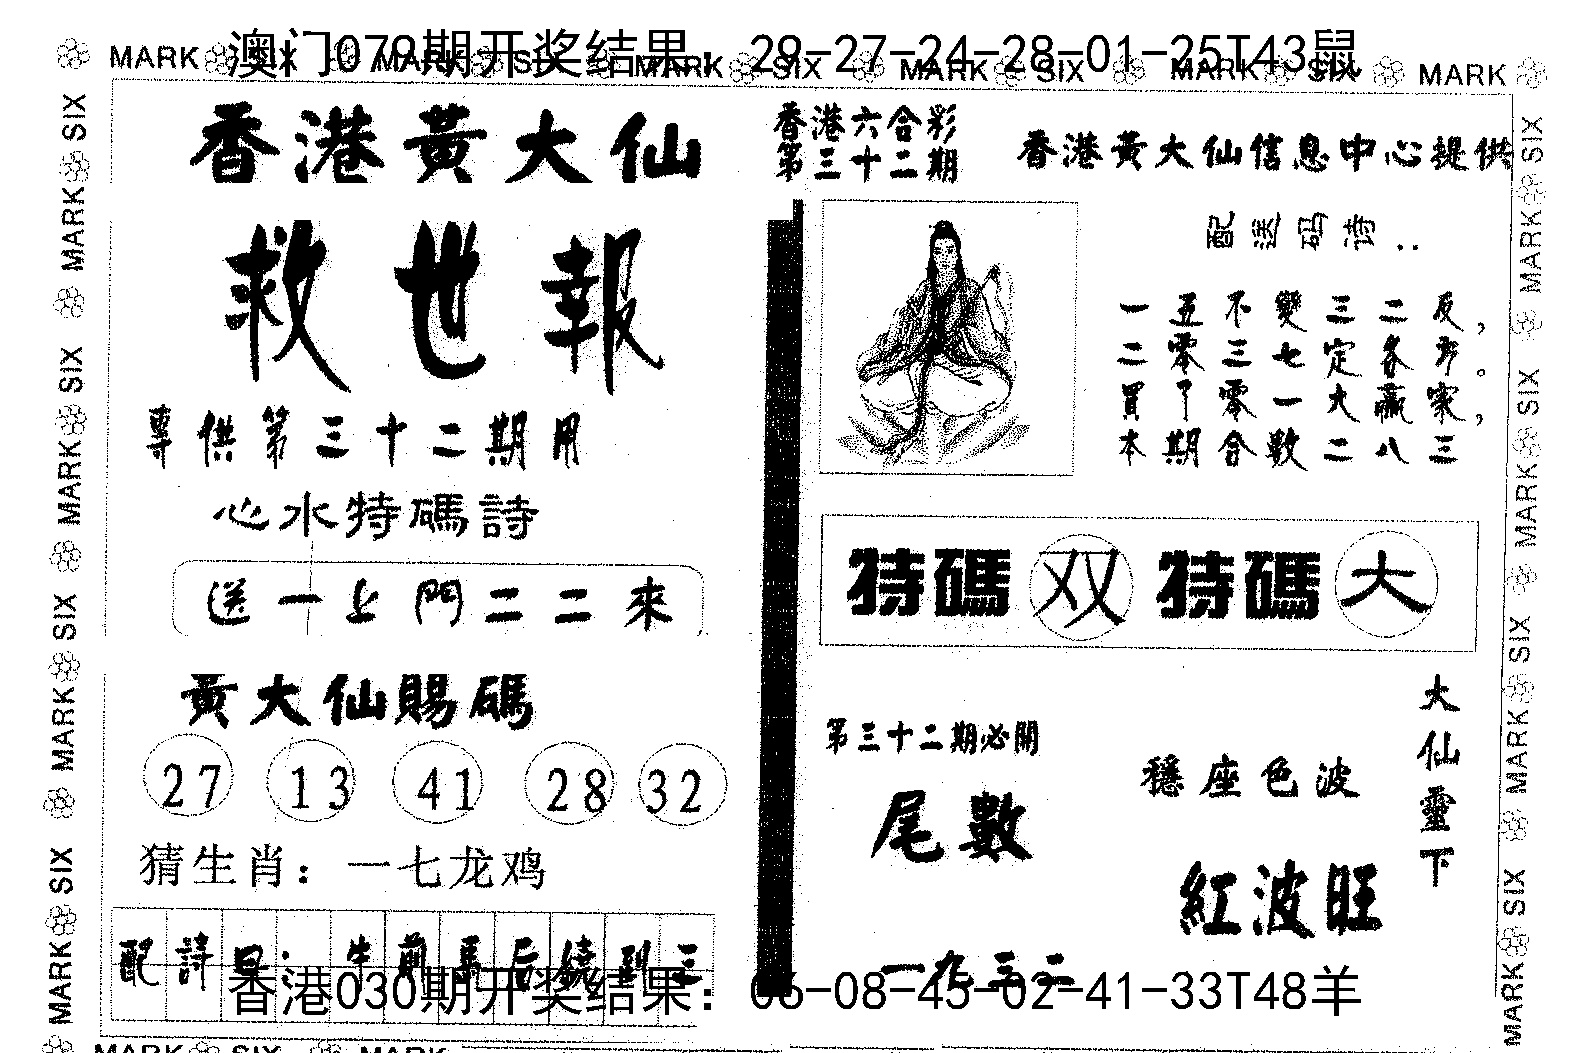 澳门079期开奖结果：29-27-24-28-01-25T43鼠
MARK SIX MARK SIX MARK SIX MARK SIX MARK
香港黃大仙
救世報
專供第三十二期用
心水特碼詩
送一上門二二來
黃大仙賜碼
27 13 41 28 32
猜生肖：一七龙鸡
配詩曰：牛前馬后繞到三
香港六合彩
第三十二期
香港黃大仙信息中心提供
配送码诗：
一五不變三二反，
二零三七定各形。
買了零一大贏家，
本期合數二八三
特碼双 特碼大
第三十二期必開
尾數
一九三二
穩座色波
紅波旺
大仙靈下
香港030期开奖结果：06-08-45-02-41-33T48羊
MARK SIX MARK SIX MARK SIX MARK SIX
MARK SIX MARK SIX MARK SIX MARK SIX
MARK SIX MARK